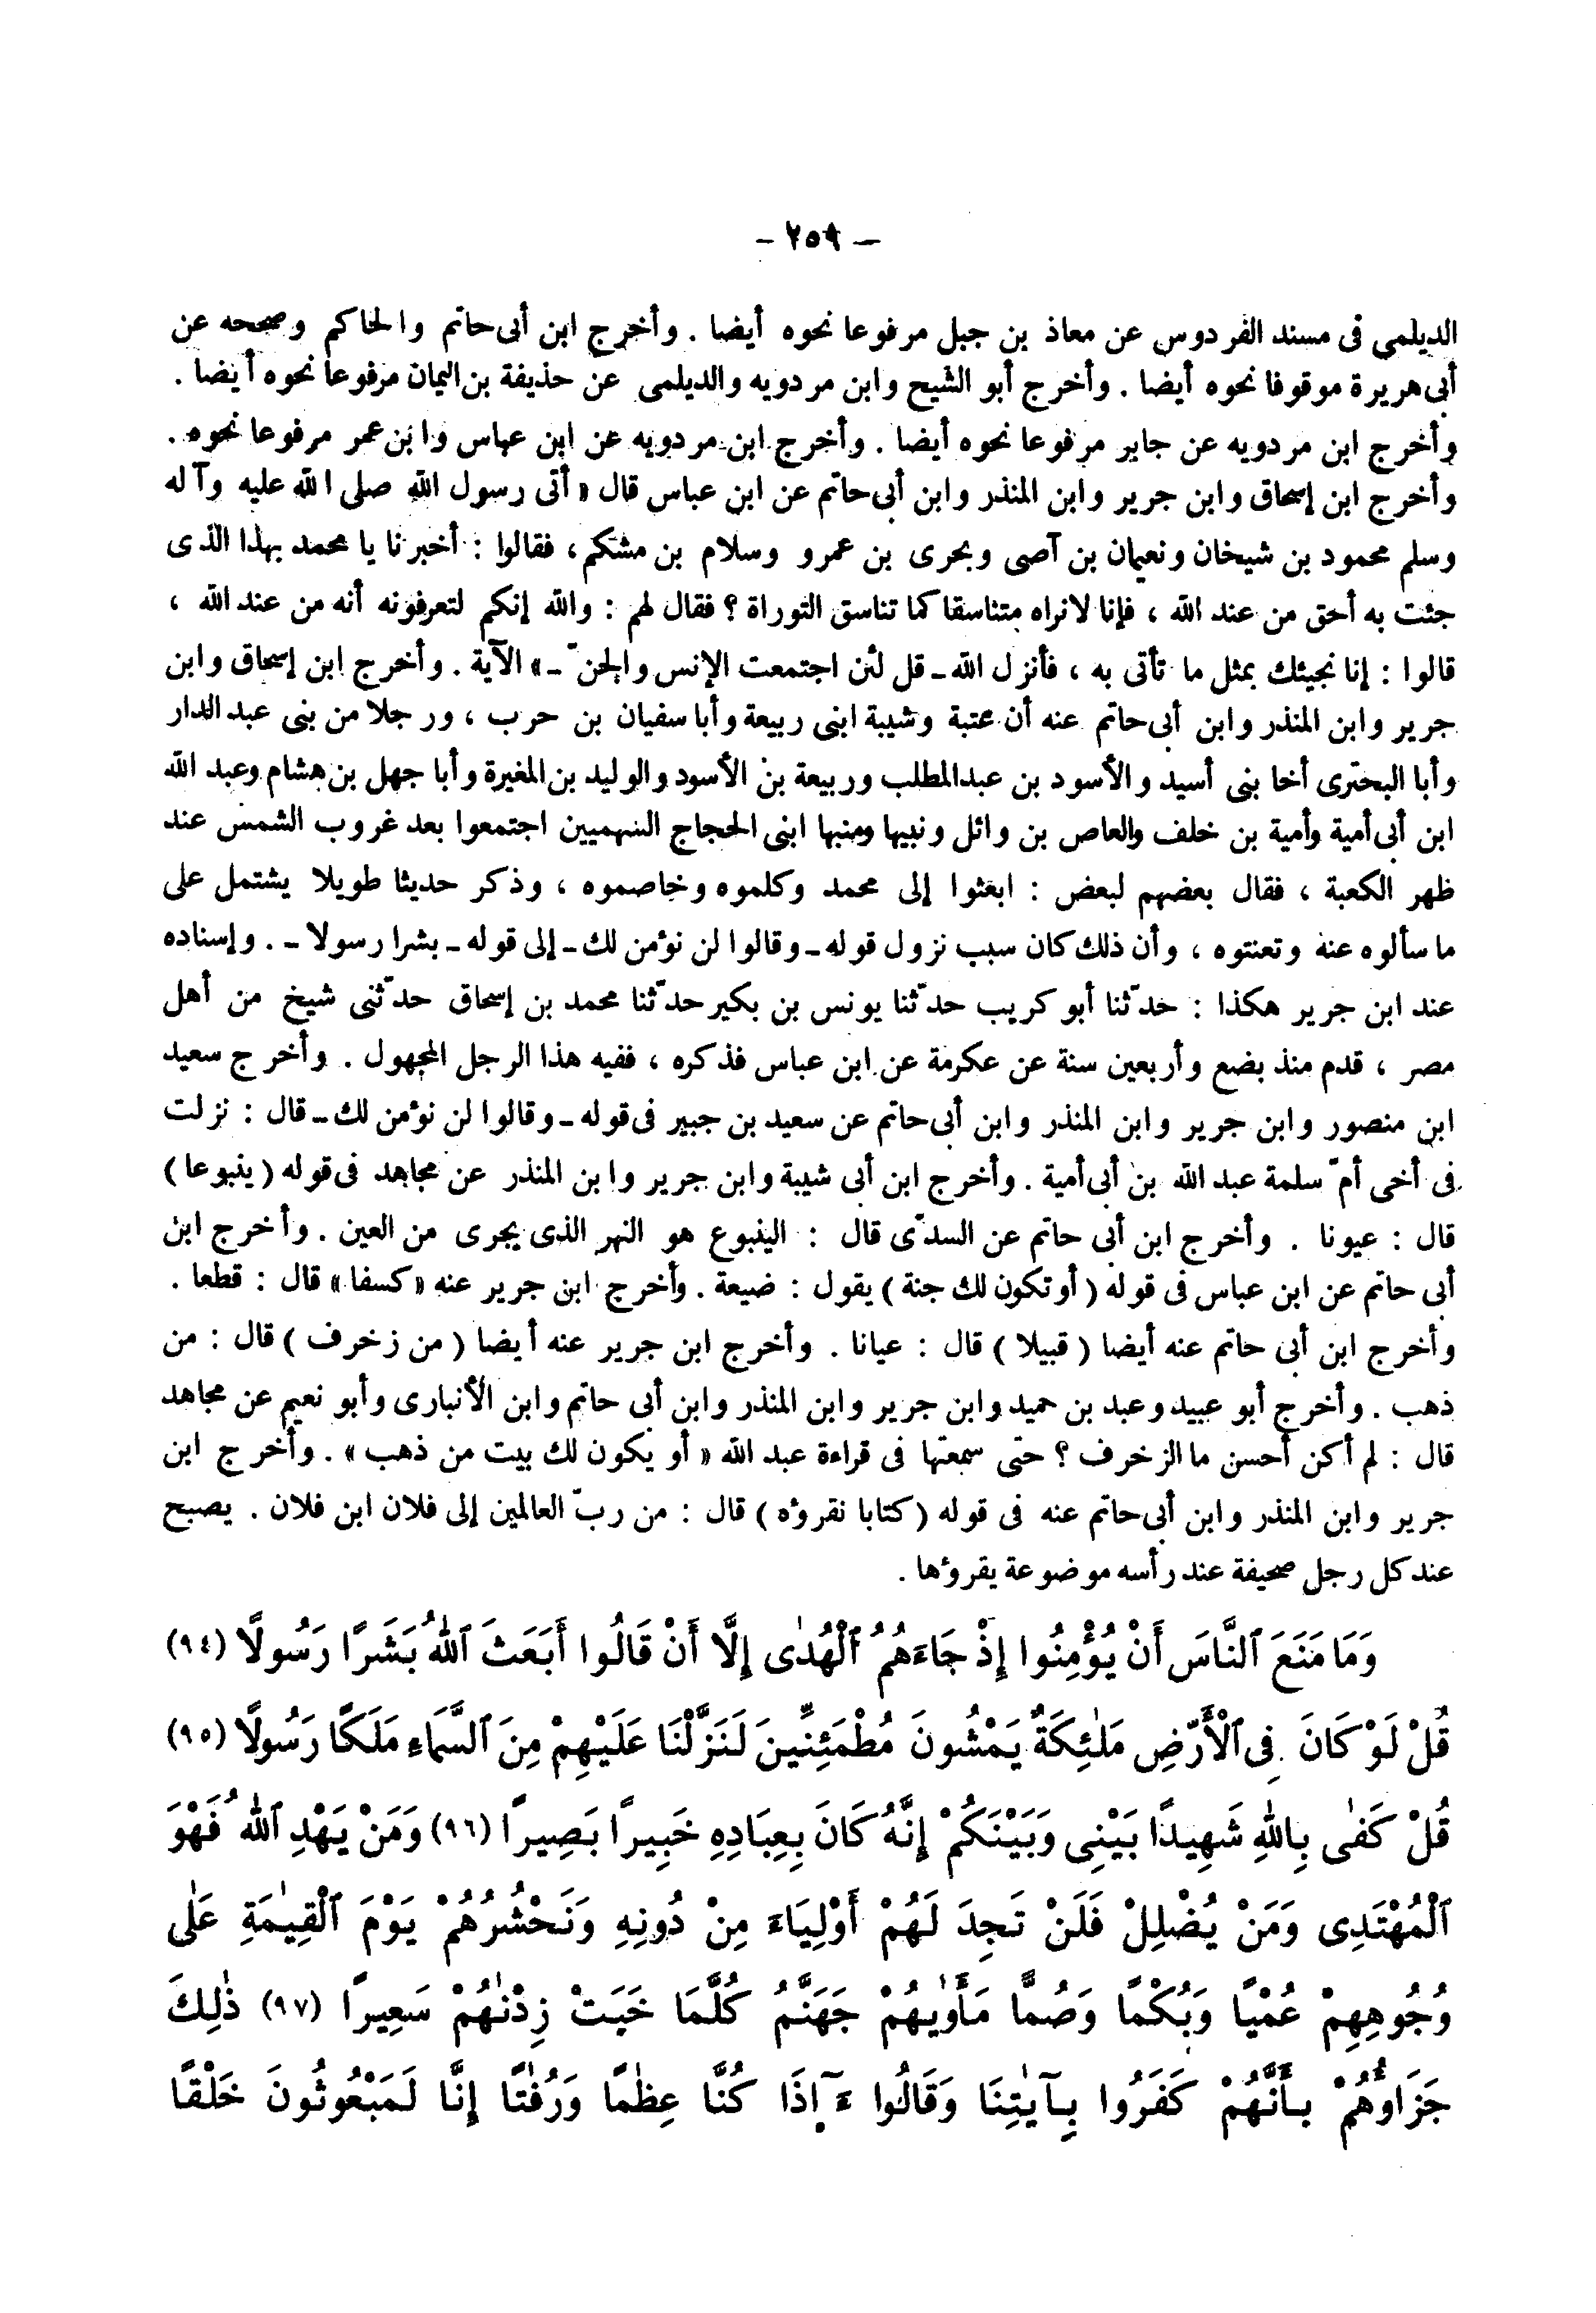 — ٢٥٩ —
الديلمى فى مسند الفردوس عن معاذ بن جبل مرفوعا نحوه أيضا . وأخرج ابن أبى حاتم والحاكم وصححه عن
أبى هريرة موقوفا نحوه أيضا . وأخرج أبو الشيخ وابن مردويه والديلمى عن حذيفة بن اليمان مرفوعا نحوه أيضا .
وأخرج ابن مردويه عن جابر مرفوعا نحوه أيضا . وأخرج ابن مردويه عن ابن عباس وابن عمر مرفوعا نحوه .
وأخرج ابن إسحاق وابن جرير وابن المنذر وابن أبى حاتم عن ابن عباس قال « أتى رسول الله صلى الله عليه وآله
وسلم محمود بن شيخان ونعيمان بن آصى وبحرى بن عمرو وسلام بن مشكم ، فقالوا : أخبرنا يا محمد بهذا الذى
جئت به أحق من عند الله ، فإنا لانراه متناسقا كما تناسق التوراة ؟ فقال لهم : والله إنكم لتعرفونه أنه من عند الله ،
قالوا : إنا نجيئك بمثل ما تأتى به ، فأنزل الله ـ قل لئن اجتمعت الإنس والجنّ ـ » الآية . وأخرج ابن إسحاق وابن
جرير وابن المنذر وابن أبى حاتم عنه أن عتبة وشيبة ابنى ربيعة وأبا سفيان بن حرب ، ورجلا من بنى عبد الدار
وأبا البحترى أخا بنى أسيد والأسود بن عبدالمطلب وربيعة بن الأسود والوليد بن المغيرة وأبا جهل بن هشام وعبد الله
ابن أبى أمية وأمية بن خلف والعاص بن وائل ونبيها ومنبها ابنى الحجاج السهميين اجتمعوا بعد غروب الشمس عند
ظهر الكعبة ، فقال بعضهم لبعض : ابعثوا إلى محمد وكلموه وخاصموه ، وذكر حديثا طويلا يشتمل على
ما سألوه عنه وتعنتوه ، وأن ذلك كان سبب نزول قوله ـ وقالوا لن نؤمن لك ـ إلى قوله ـ بشرا رسولا ـ . وإسناده
عند ابن جرير هكذا : حدّثنا أبو كريب حدّثنا يونس بن بكير حدّثنا محمد بن إسحاق حدّثنى شيخ من أهل
مصر ، قدم منذ بضع وأربعين سنة عن عكرمة عن ابن عباس فذكره ، ففيه هذا الرجل المجهول . وأخرج سعيد
ابن منصور وابن جرير وابن المنذر وابن أبى حاتم عن سعيد بن جبير فى قوله ـ وقالوا لن نؤمن لك ـ قال : نزلت
فى أخى أمّ سلمة عبد الله بن أبى أمية . وأخرج ابن أبى شيبة وابن جرير وابن المنذر عن مجاهد فى قوله ( ينبوعا )
قال : عيونا . وأخرج ابن أبى حاتم عن السدّى قال : الينبوع هو النهر الذى يجرى من العين . وأخرج ابن
أبى حاتم عن ابن عباس فى قوله ( أو تكون لك جنة ) يقول : ضيعة . وأخرج ابن جرير عنه « كسفا » قال : قطعا .
وأخرج ابن أبى حاتم عنه أيضا ( قبيلا ) قال : عيانا . وأخرج ابن جرير عنه أيضا ( من زخرف ) قال : من
ذهب . وأخرج أبو عبيد وعبد بن حميد وابن جرير وابن المنذر وابن أبى حاتم وابن الأنبارى وأبو نعيم عن مجاهد
قال : لم أكن أحسن ما الزخرف ؟ حتى سمعتها فى قراءة عبد الله « أو يكون لك بيت من ذهب » . وأخرج ابن
جرير وابن المنذر وابن أبى حاتم عنه فى قوله ( كتابا نقرؤه ) قال : من ربّ العالمين إلى فلان ابن فلان . يصبح
عند كل رجل صحيفة عند رأسه موضوعة يقرؤها .
وَمَا مَنَعَ ٱلنَّاسَ أَنْ يُؤْمِنُوا إِذْ جَاءَهُمُ ٱلْهُدَىٰ إِلَّا أَنْ قَالُوا أَبَعَثَ ٱللهُ بَشَرًا رَسُولًا (٩٤)
قُلْ لَوْ كَانَ فِى ٱلْأَرْضِ مَلَٰئِكَةٌ يَمْشُونَ مُطْمَئِنِّينَ لَنَزَّلْنَا عَلَيْهِمْ مِنَ ٱلسَّمَاءِ مَلَكًا رَسُولًا (٩٥)
قُلْ كَفَىٰ بِاللهِ شَهِيدًا بَيْنِى وَبَيْنَكُمْ إِنَّهُ كَانَ بِعِبَادِهِ خَبِيرًا بَصِيرًا (٩٦) وَمَنْ يَهْدِ ٱللهُ فَهْوَ
ٱلْمُهْتَدِى وَمَنْ يُضْلِلْ فَلَنْ تَجِدَ لَهُمْ أَوْلِيَاءَ مِنْ دُونِهِ وَنَحْشُرُهُمْ يَوْمَ ٱلْقِيَٰمَةِ عَلَىٰ
وُجُوهِهِمْ عُمْيًا وَبُكْمًا وَصُمًّا مَأْوَٰيهُمْ جَهَنَّمُ كُلَّمَا خَبَتْ زِدْنَٰهُمْ سَعِيرًا (٩٧) ذَٰلِكَ
جَزَاؤُهُمْ بِأَنَّهُمْ كَفَرُوا بِـَٔايَٰتِنَا وَقَالُوا ءَإِذَا كُنَّا عِظَٰمًا وَرُفَٰتًا إِنَّا لَمَبْعُوثُونَ خَلْقًا